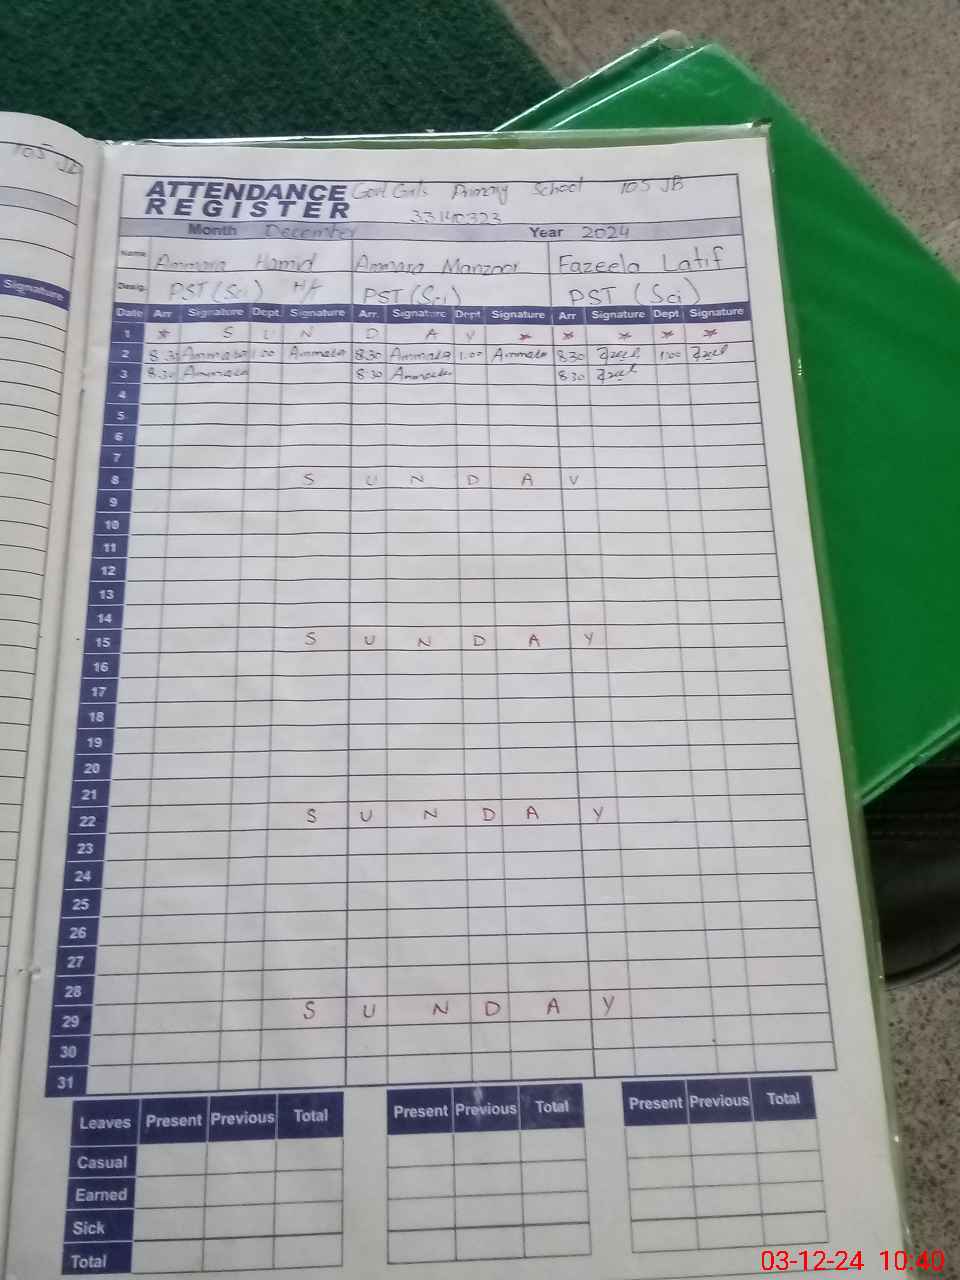 105 JB
Signature
ATTENDANCE REGISTER Govt Girls Primary School 105 JB
33140323
Month December Year 2024
Name Ammara Hamid Ammara Manzoor Fazeela Latif
Desig. PST (Sci) H/T PST (Sci) PST (Sci)
Date Arr Signature Dept. Signature Arr. Signature Dept Signature Arr Signature Dept Signature
1 * S U N D A Y * * * * *
2 8.30 Ammara 1.00 Ammara 8.30 Ammara 1.00 Ammara 8.30 1.00
3 8.30 Ammara 8.30 Ammara 8.30
4
5
6
7
8 S U N D A Y
9
10
11
12
13
14
15 S U N D A Y
16
17
18
19
20
21
22 S U N D A Y
23
24
25
26
27
28
29 S U N D A Y
30
31
Leaves Present Previous Total Present Previous Total Present Previous Total
Casual
Earned
Sick
Total
03-12-24 10:40